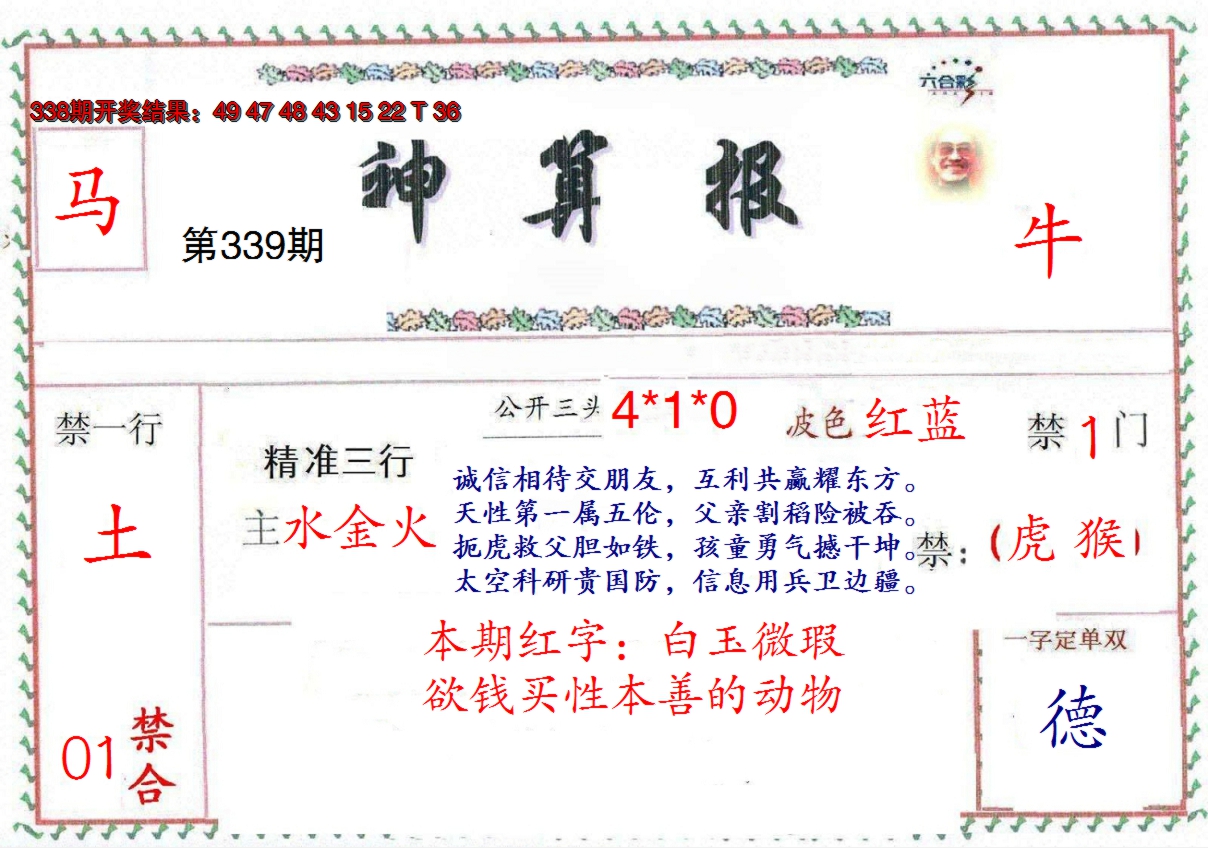 六合彩
338期开奖结果：49 47 48 43 15 22 T 36
神算报
马
第339期
牛
公开三头 4*1*0
波色 红蓝
禁1门
禁一行
土
精准三行
主水金火
诚信相待交朋友，互利共赢耀东方。
天性第一属五伦，父亲割稻险被吞。
扼虎救父胆如铁，孩童勇气撼干坤。
太空科研贵国防，信息用兵卫边疆。
禁：（虎 猴）
本期红字：白玉微瑕
欲钱买性本善的动物
一字定单双
德
01 禁合